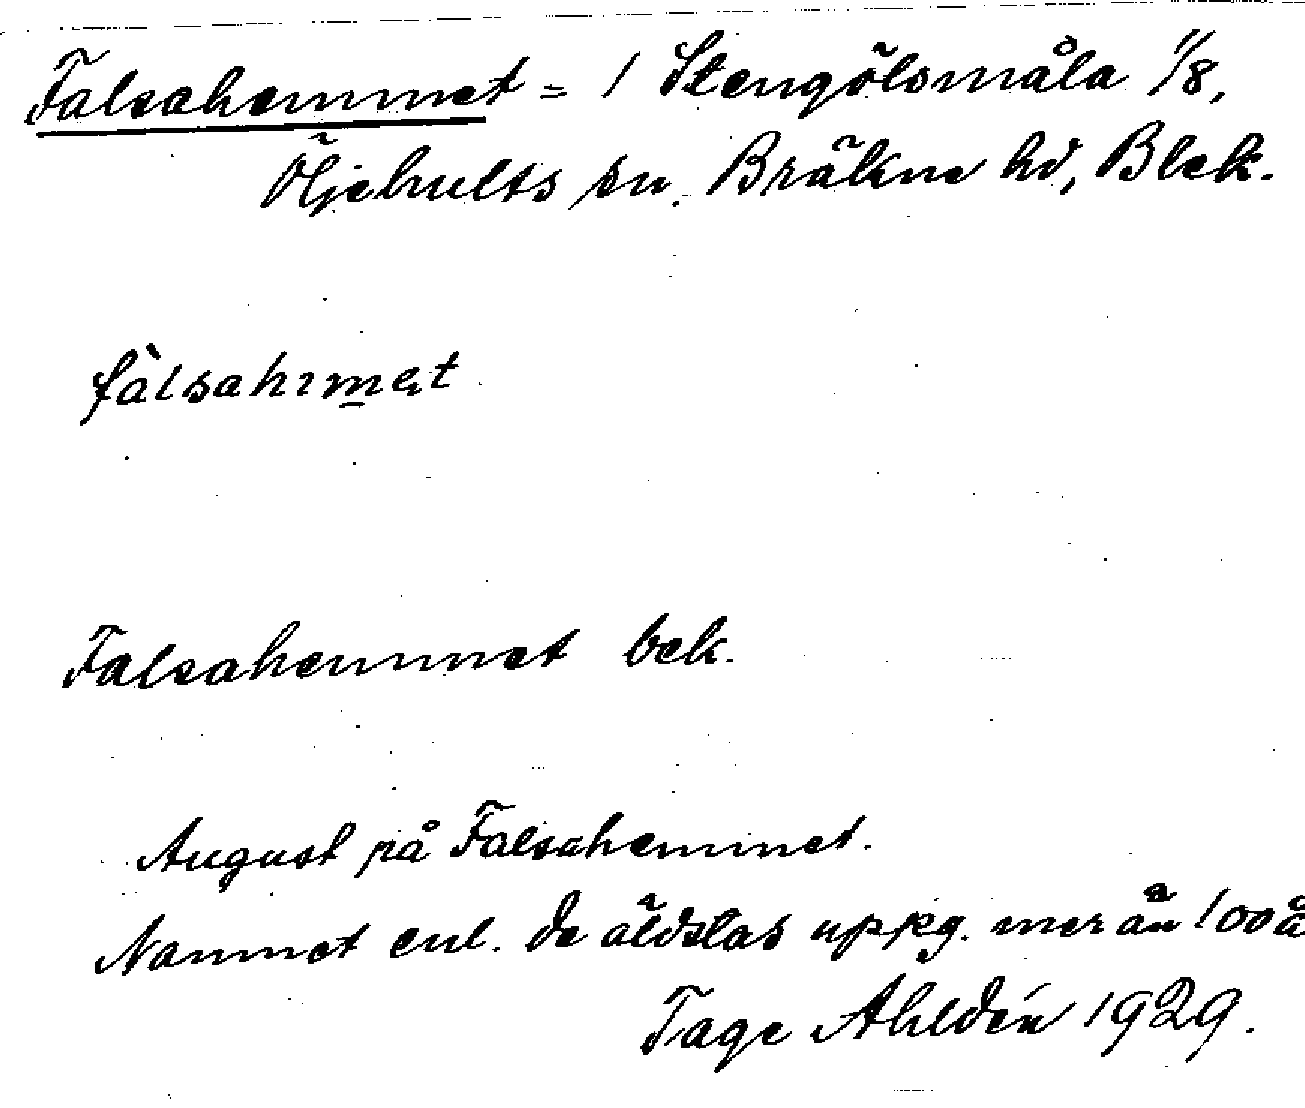 Falsahemmet = 1 Stengölsmåla 1/8,
Öljehults sn. Bräkne hd, Blek.
fàlsahımet
Falsahemmet bek.
August på Falsahemmet.
Namnet enl. de äldstas uppg. mer än 100 å
Tage Ahldén 1929.